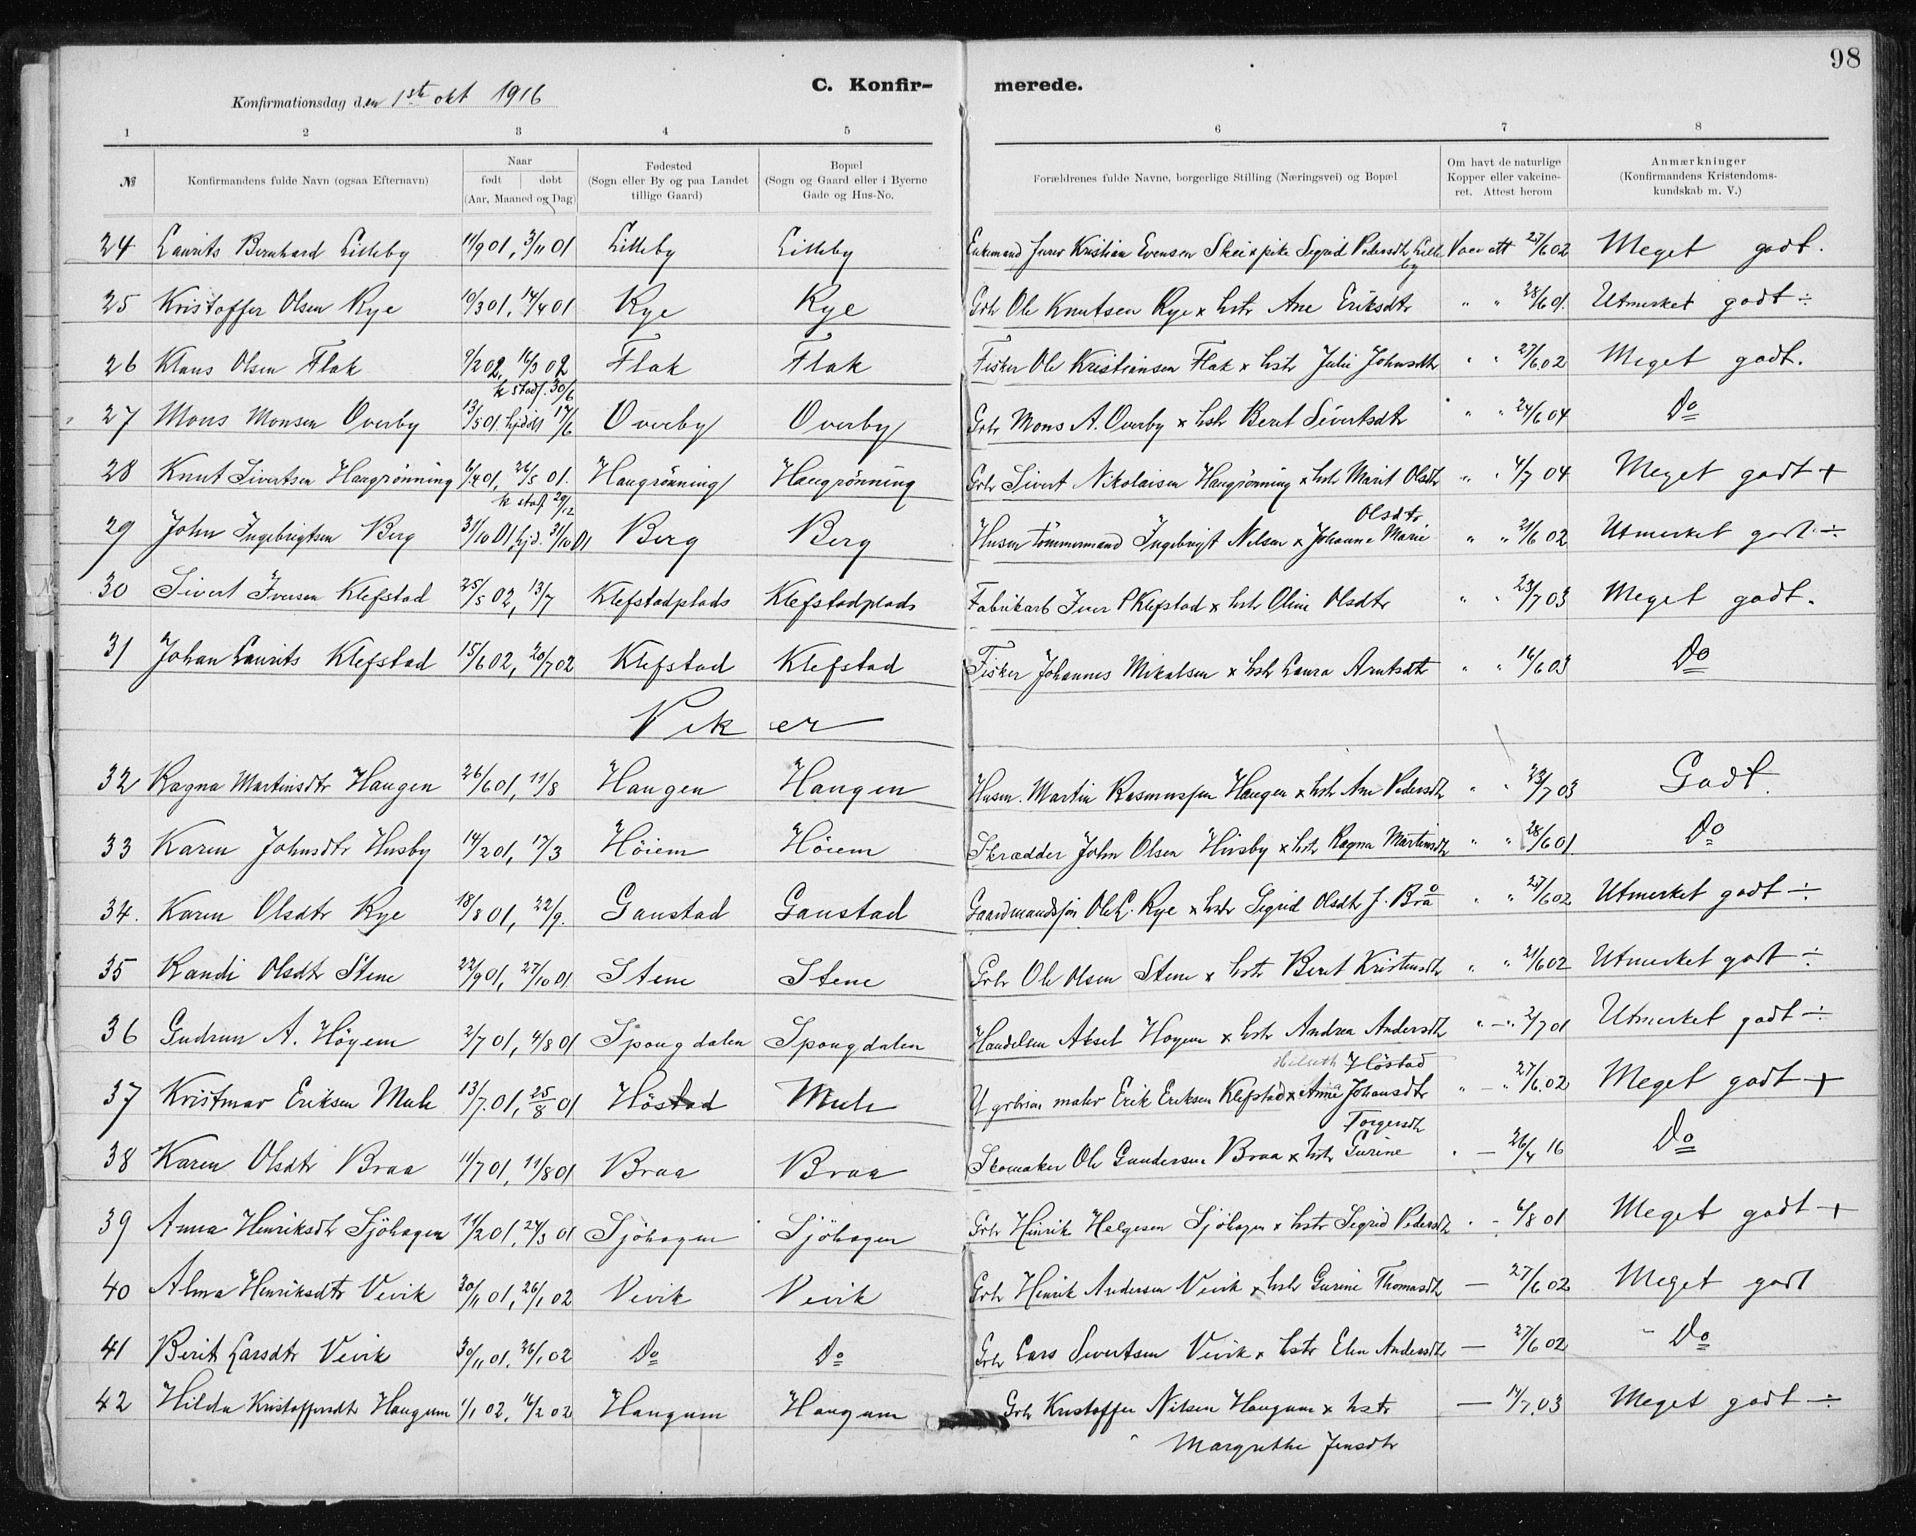 98
Konfirmationsdag den 1ste okt 1916 C. Konfir- merede.
1 2 3 4 5 6 7 8
№ Konfirmandens fulde Navn (ogsaa Efternavn) Naar født døbt (Aar, Maaned og Dag) Fødested (Sogn eller By og paa Landet tillige Gaard) Bopæl (Sogn og Gaard eller i Byerne Gade og Hus-No. Forældrenes fulde Navne, borgerlige Stilling (Næringsvei) og Bopæl Om havt de naturlige Kopper eller vakcineret. Attest herom Anmærkninger (Konfirmandens Kristendomskundskab m. V.)
24 Laurits Bernhard Lilleby 11/9 01, 3/11 01 Lilleby Lilleby Enkemand Kristian Evensen Skei x pike Sigrid Pedersdtr Lilleby Vac att 27/6 02 Meget godt.
25 Kristoffer Olsen Rye 10/3 01, 14/4 01 Rye Rye Gbr Ole Knutsen Rye x hstr Ane Eriksdtr " " 28/6 01. Utmerket godt ÷
26 Klaus Olsen Flak 9/2 02, 16/3 02 Flak Flak Fisker Ole Kristiansen Flak x hstr Julie Johnsdtr " " 27/6 02 Meget godt.
27 Mons Monsen Overby 13/5 01 hjdøbt 17/6 k stadf. 30/6 Overby Overby Gbr Mons A. Overby x hstr Berit Sivertsdtr " " 24/6 04 Do
28 Knut Sivertsen Haugrønning 6/4 01, 26/5 01. Haugrønning Haugrønning Gbr Sivert Nikolaisen Haugrønning x hstr Marit Olsdtr " " 4/7 04 Meget godt +
29 John Ingebrigtsen Berg 31/10 01 hjd. 31/10 01 k staf 29/12 Berg Berg Husm tømmermand Ingebrigt Nilsen x Johanne Marie Olsdtr " " 21/6 02 Utmerket godt ÷
30 Sivert Iversen Klefstad 25/5 02, 13/7 Klefstadplads Klefstadplads Fabrikarb Iver P Klefstad x hstr Oline Olsdtr " " 23/7 03 Meget godt.
31 Johan Laurits Klefstad 15/6 02, 20/7 02 Klefstad Klefstad Fisker Johannes Mikalsen x hstr Laura Arntsdtr " " 16/6 03 Do
Piker
32 Ragna Martinsdtr Haugen 26/6 01, 11/8 Haugen Haugen Husm. Martin Rasmussen Haugen x hstr Ane Pedersdtr " " 23/7 03 Godt.
33 Karen Johnsdtr Husby 14/2 01, 17/3 Høiem Høiem Skrædder John Olsen Husby x hstr Ragna Martinsdtr " " 28/6 01 Do
34. Karen Olsdtr Rye 18/8 01, 22/9. Ganstad Ganstad Gaardmandssøn Ole L. Rye x hstr Sigrid Olsdtr f. Brå " " 27/6 02 Utmerket godt ÷
35 Randi Olsdtr Stene 22/9 01, 27/10 01 Stene Stene Gbr Ole Olsen Stene x hstr Berit Kristensdtr " " 21/6 02 Utmerket godt ÷
36 Gudrun A. Höyem 2/7 01, 4/8 01 Spongdalen Spongdalen Handelsm Aksel Høyem x hstr Andrea Andersdtr " — " 2/7 01 Utmerket godt ÷
37 Kristmar Eriksen Mule 13/7 01, 25/8 01 Høstad Mule maler Erik Eriksen Klefstad x Anna Johansdtr Høstad " — " 27/6 02 Meget godt +
38 Karen Olsdtr Braa 11/7 01, 11/8 01 Braa Braa Skomaker Ole Gundersen Braa x hstr Gurine Torgersdtr " — 26/4 16 Do
39 Anna Henriksdtr Sjøhagen 11/2 01, 24/3 01 Sjøhagen Sjøhagen Gbr Hinrik Helgesen Sjøhagen x hstr Sigrid Pedersdtr " - 6/8 01 Meget godt +
40 Alma Henriksdtr Vevik 30/11 01, 26/1 02 Vevik Vevik Gbr Henrik Andersen Vevik x hstr Gurine Thomasdtr — 27/6 02 Meget godt
41 Berit Larsdtr Vevik 30/11 01. 26/1 02 Do Do Gbr Lars Sivertsen Vevik x hstr Elen Andersdtr — 27/6 02 " Do
42 Hilda Kristoffersdtr Haugum 1/1 02, 16/2 02 Haugum Haugum Gbr Kristoffer Nilsen Haugum x hstr — 14/7 03 Meget godt ÷
Margrethe Jensdtr